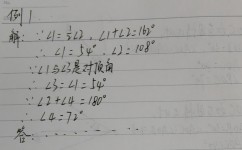 例1
解: ∵∠1=½∠2, ∠1+∠2=162°
∴∠1=54°, ∠2=108°
∵∠1与∠3是对顶角
∴∠3=∠1=54°
∵∠2+∠4=180°
∴∠4=72°
答: ........